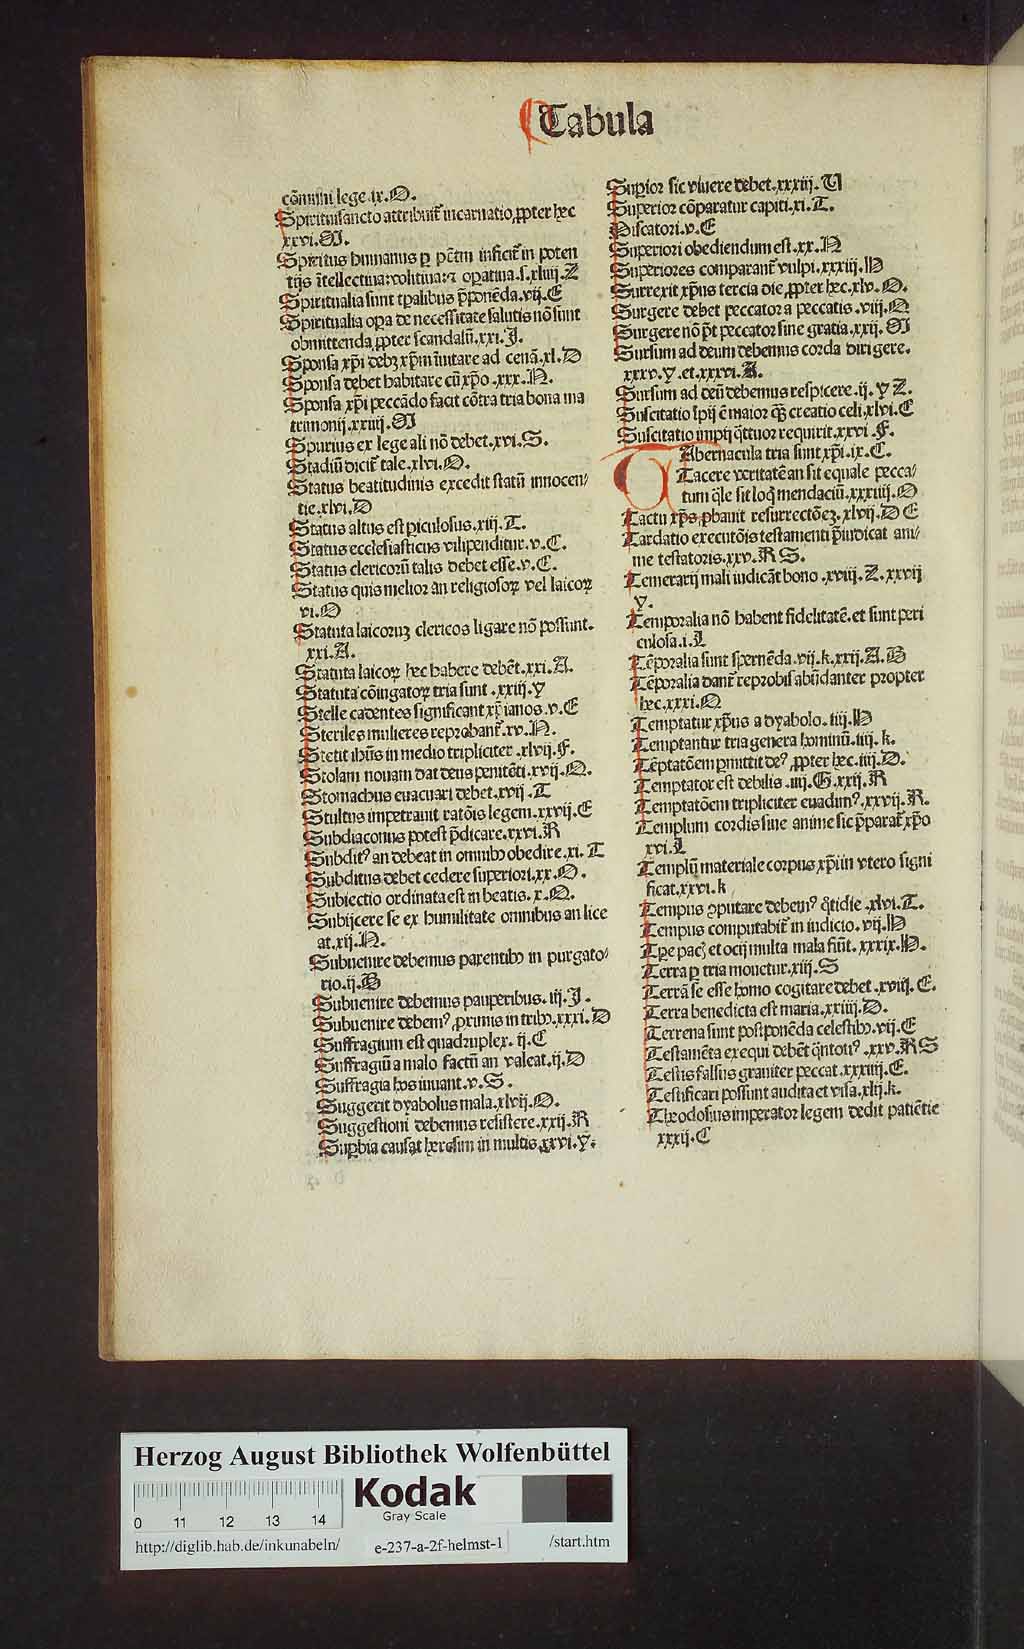 Tabula
cōmuni lege .ix.O.
Spirituisancto attribuit᷑ incarnatio ꝓpter hec
xxvi.M.
Spiritus humanus ꝑ pctm̄ inficit᷑ in poten
tijs ītellectiua: volitiua: ⁊ oꝑatiua .s.xliiij.Z
Spiritualia sunt tꝑalibus p̄ponēda .vij.E
Spiritualia oꝑa de necessitate salutis nō sunt
obmittenda ꝓpter scandalū .xxi.J.
Sponsa xp̄i debꝫ xp̄m īuitare ad cenā .xl.D
Sponsa debet habitare cū xp̄o .xxx.N.
Sponsa xp̄i peccādo facit cōtra tria bona ma
trimonij .xxiiij.M
Spurius ex lege ali nō debet .xvi.S.
Stadiū dicit᷑ tale .xlvi.O.
Status beatitudinis excedit statū innocen⸗
tie .xlvi.D
Status altus est ꝑiculosus .xiij.T.
Status ecclesiasticus vilipenditur .v.C.
Status clericorū talis debet esse .v.C.
Status quis melior an religiosoꝝ vel laicoꝝ
vi.O
Statuta laicoruꝫ clericos ligare nō possunt.
xxi.A.
Statuta laicoꝝ hec habere debēt .xxi.A.
Statuta cōiugatoꝝ tria sunt .xxiij.Y
Stelle cadentes significant xp̄ianos .v.E
Steriles mulieres reprobant᷑ .xv.N.
Stetit ihūs in medio tripliciter .xlvij.F.
Stolam nouam dat deus penitēti .xvij.O.
Stomachus euacuari debet .xvij.T
Stultus impetrauit ratōis legem .xxvij.E
Subdiaconus potest p̄dicare .xxvi.R
Subditꝰ an debeat in omnibꝫ obedire .xi.T
Subditus debet cedere superiori .xx.O.
Subiectio ordinata est in beatis .x.O.
Subijcere se ex humilitate omnibus an lice
at .xij.N.
Subuenire debemus parentibꝫ in purgato⸗
rio .ij.B
Subuenire debemus pauperibus .iij.J.
Subuenire debemꝰ ꝓximis in tribꝫ .xxxi.D
Suffragium est quadruplex .ij.C
Suffragiū a malo factū an valeat .ij.D
Suffragia hos iuuant .v.S.
Suggerit dyabolus mala .xlvij.O.
Suggestioni debemus resistere .xxij.R
Suꝑbia causat heresim in multis .xxvi.Y.
Suꝑior sic viuere debet .xxxiij.V
Superior cōparatur capiti .xi.T.
Piscatori .v.E
Superiori obediendum est .xx.N
Superiores comparant᷑ vulpi .xxxiij.H
Surrexit xp̄us tercia die ꝓpter hec .xlv.O.
Surgere debet peccator a peccatis .viij.O
Surgere nō pōt peccator sine gratia .xxij.M
Sursum ad deum debemus corda dirigere.
xxxv.Y.et.xxxvi.A.
Sursum ad deū debemus respicere .ij.Y Z.
Suscitatio īpij ē maior qꝫ creatio celi .xlvi.C
Suscitatio impij qttuor requirit .xxvi.F.
TAbernacula tria sunt xp̄i .ix.C.
Tacere veritatē an sit equale pecca⸗
tum qle sit loqui mendaciū .xxxiiij.O
Tactu xp̄s ꝓbauit resurrectōeꝫ .xlvij.D E
Tardatio executōis testamenti p̄iudicat ani⸗
me testatoris .xxv.R S.
Temerarij mali iudicāt bono .xviij.Z.xxvij
Y.
Temporalia nō habent fidelitatē. et sunt peri
culosa .i.L
Tēporalia sunt spernēda .vij.k.xxij.A.B
Tēporalia dant᷑ reprobis abūdanter propter
hec .xxxi.O
Temptatur xp̄us a dyabolo .iiij.H
Temptantur tria genera hominū .iiij.k.
Tēptatōem ꝑmittit deꝰ ꝓpter hec .iiij.D.
Temptator est debilis .iiij.G.xxij.R
Temptatōem tripliciter euadimꝰ .xxvij.R.
Templum cordis siue anime sic p̄parat᷑ xp̄o
xvi.L
Templū materiale corpus xp̄i in vtero signi
ficat .xxvi.k
Tempus ꝯputare debemꝰ qtidie .xlvi.T.
Tempus computabit᷑ in iudicio .vij.H
Tp̄e pacꝭ et ocij multa mala fiūt .xxxix.H.
Terra ꝑ tria mouetur .xiij.S
Terrā se esse homo cogitare debet .xviij.E.
Terra benedicta est maria .xxiiij.D.
Terrena sunt postponēda celestibꝫ .vij.E
Testamēta exequi debēt qntotiꝰ .xxv.R S
Testis falsus grauiter peccat .xxxiiij.E.
Testificari possunt audita et visa .xlij.k.
Theodosius imperator legem dedit patiētie
xxxij.C
Herzog August Bibliothek Wolfenbüttel
0 11 12 13 14
Kodak
Gray Scale
http://diglib.hab.de/inkunabeln/ e-237-a-2f-helmst-1 /start.htm